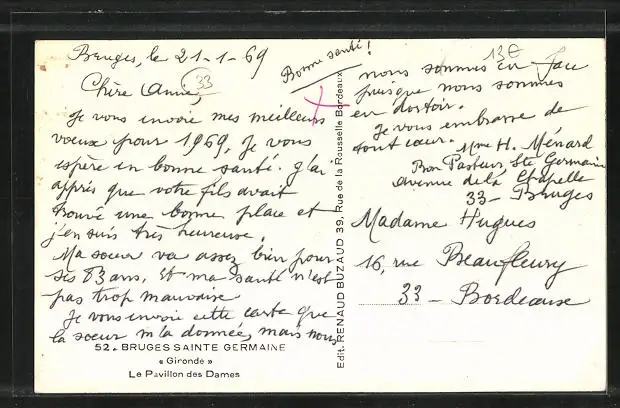 Bruges, le 21-1-69
Bonne santé!
13€
Chère Annie,
33
Je vous envoie mes meilleurs
voeux pour 1969, Je vous
espère en bonne santé. j'ai
appris que votre fils avait
trouvé une bonne place et
j'en suis très heureuse.
Ma soeur va assez bien pour
ses 83 ans, Et ma santé n'est
pas trop mauvaise
Je vous envoie cette carte que
la soeur m'a donnée, mais nous
nous sommes en face
puisque nous sommes
en dortoir.
Je vous embrasse de
tout coeur.
Mme H. Ménard
Bon Pasteur, Ste Germaine
avenue de la Chapelle
33 - Bruges
Madame Hugues
16, rue Beaufleury
33 - Bordeaux
52. BRUGES SAINTE GERMAINE
« Gironde »
Le Pavillon des Dames
Edit. RENAUD BUZAUD 39, Rue de la Rousselle Bordeaux